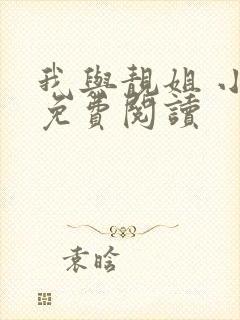 我與靚姐 小
免費閱讀
袁晗